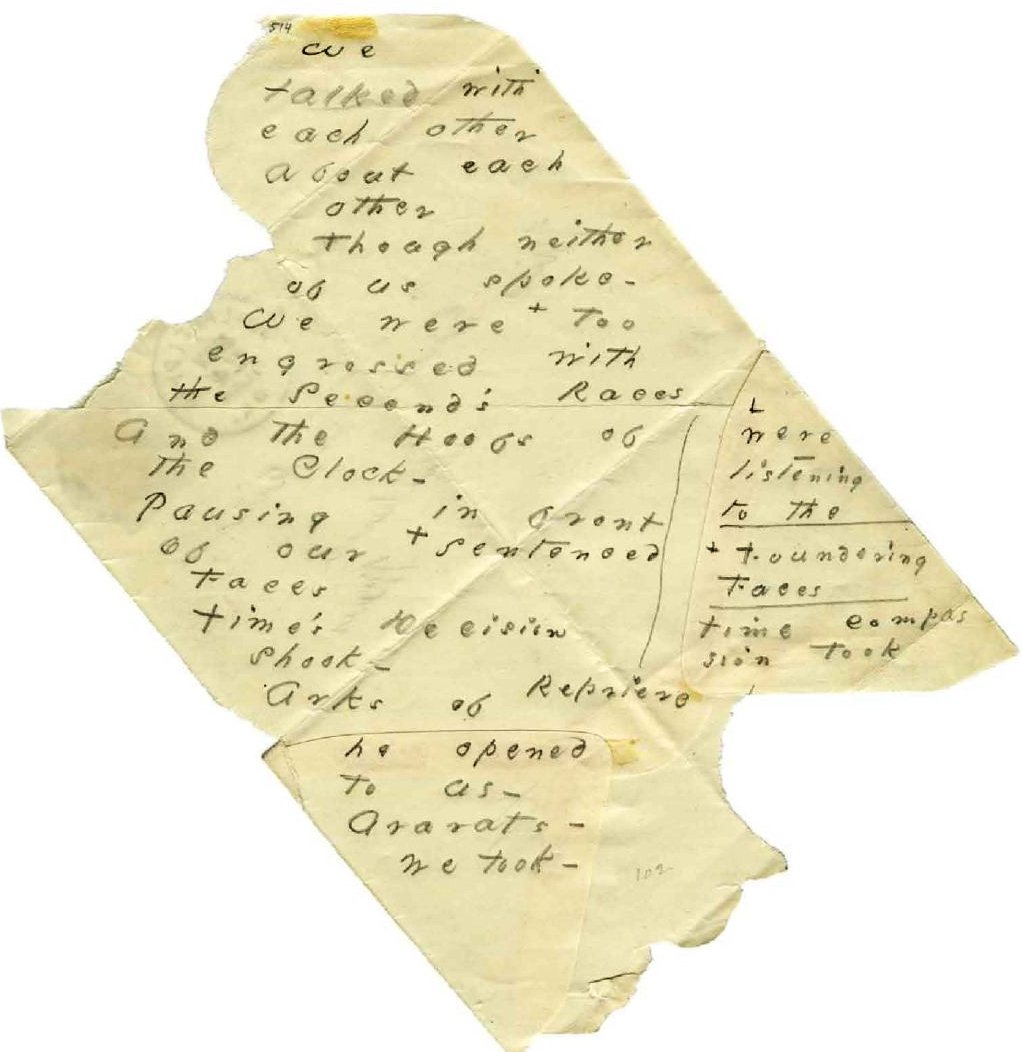 514
We
talked with
each other
about each
other
though neither
of us spoke -
We were + too
engrossed with
the Second's Races
And the Hoofs of
the Clock -
Pausing in front
of our + sentenced
Faces
Time's Decision
shook -
Arks of Reprieve
he opened
to us -
Ararats -
we took -
were
listening
to the
+ Foundering
Faces
time compas
sion took
102